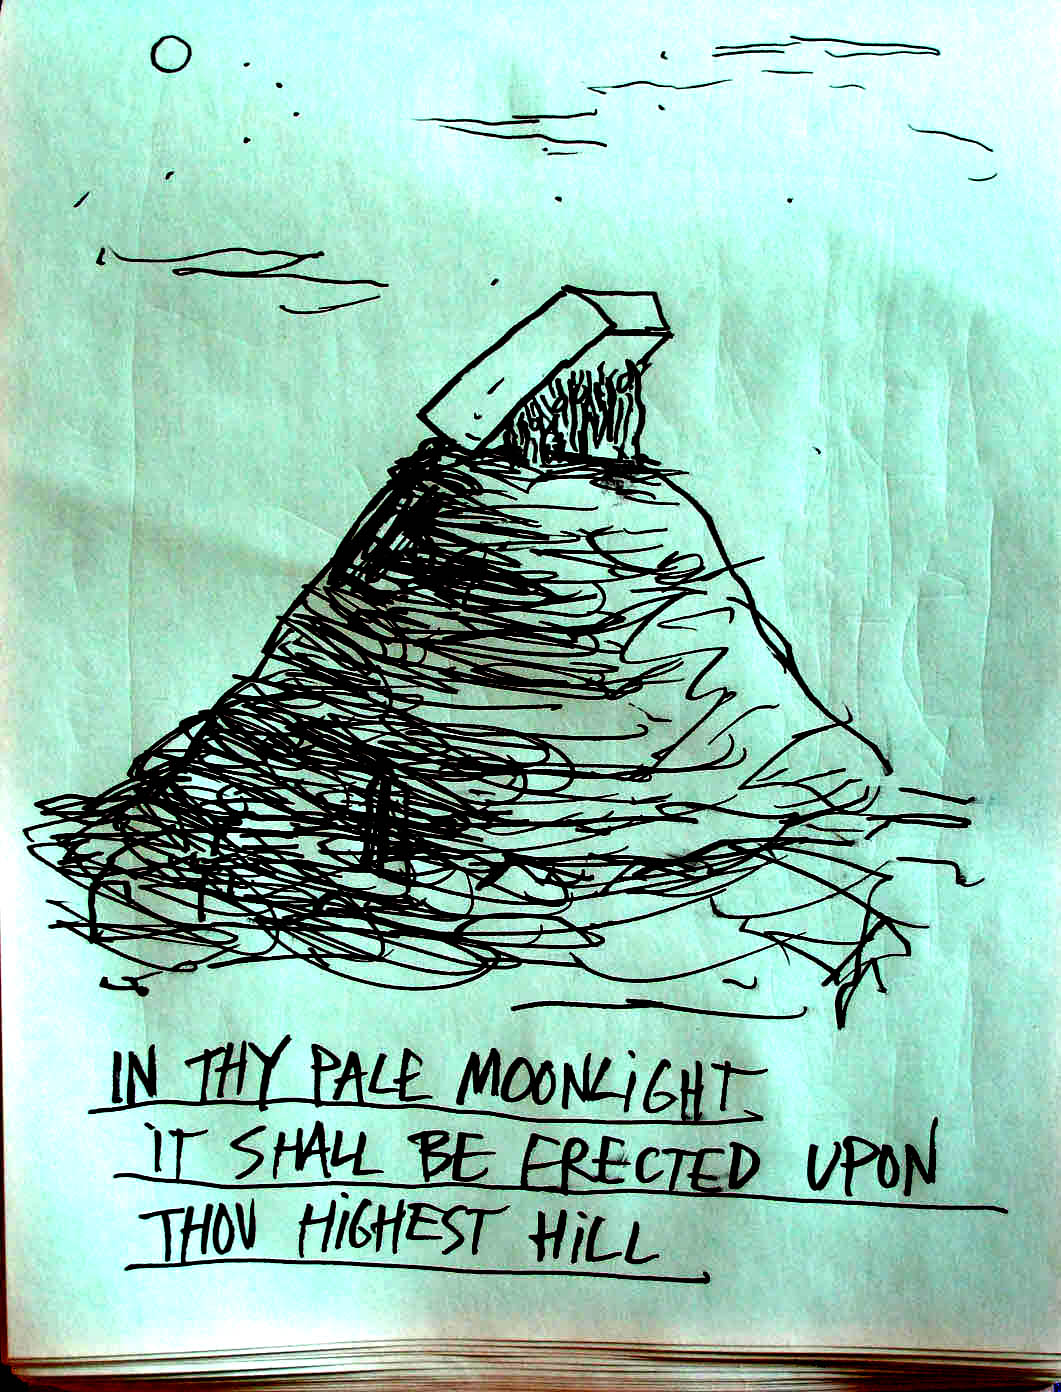 IN THY PALE MOONLiGHT
iT SHALL BE ERECTED UPON
THOU HiGHEST HiLL